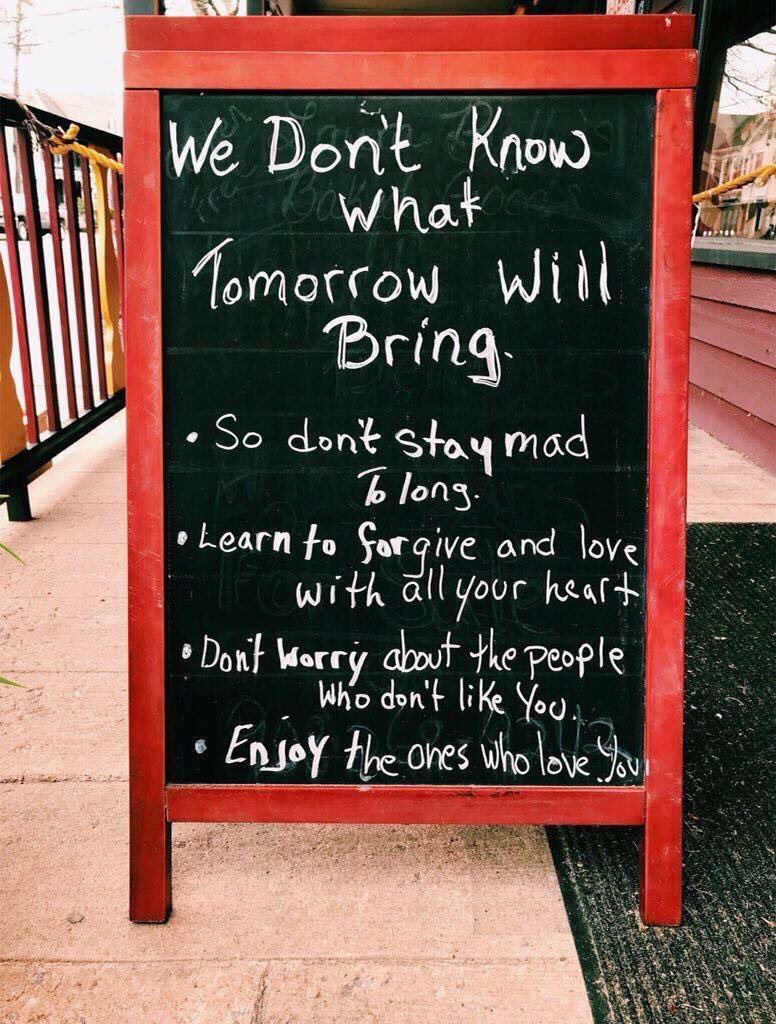 We Don't Know
What
Tomorrow Will
Bring.
• So don't stay mad
To long.
• Learn to forgive and love
with all your heart
• Don't Worry about the people
Who don't like You.
• Enjoy the ones who love You